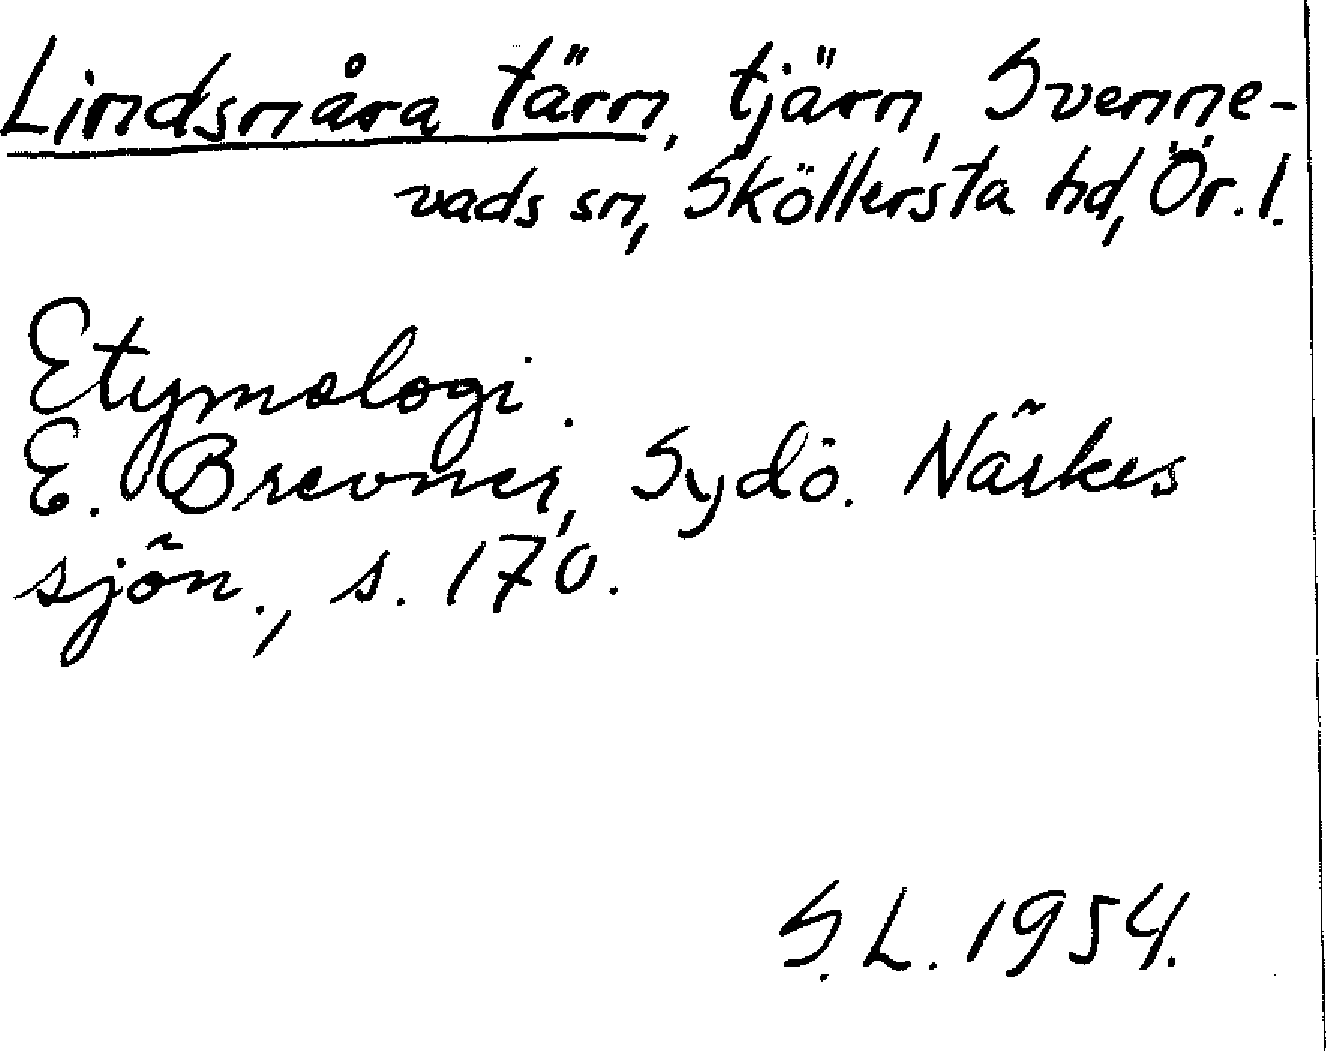 Lindsnåra tärn, tjärn, Svenne-
vads sn, Sköllersta hd, Ör. l.
Etymologi.
E. Brevner, Sydö. Närkes
sjön., s. 170.
S. L. 1954.